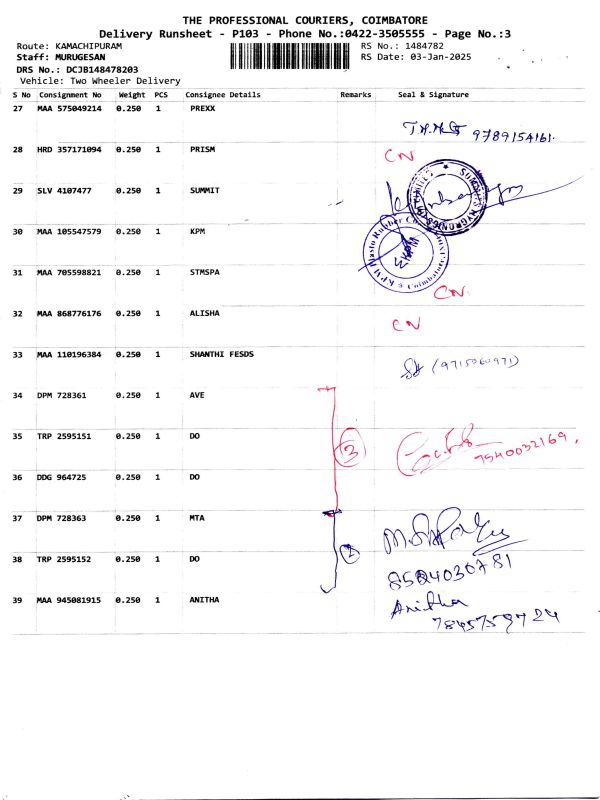 THE PROFESSIONAL COURIERS, COIMBATORE
Delivery Runsheet - P103 - Phone No.:0422-3505555 - Page No.:3
Route: KAMACHIPURAM RS No.: 1484782
Staff: MURUGESAN RS Date: 03-Jan-2025
DRS No.: DCJB148478203
Vehicle: Two Wheeler Delivery
S No Consignment No Weight PCS Consignee Details Remarks Seal & Signature
27 MAA 575049214 0.250 1 PREXX
9789154161.
28 HRD 357171094 0.250 1 PRISM CN
29 SLV 4107477 0.250 1 SUMMIT
30 MAA 105547579 0.250 1 KPM
31 MAA 705598821 0.250 1 STMSPA CN
32 MAA 868776176 0.250 1 ALISHA CN
33 MAA 110196384 0.250 1 SHANTHI FESDS (9715060971)
34 DPM 728361 0.250 1 AVE
35 TRP 2595151 0.250 1 DO 3
9540032169,
36 DDG 964725 0.250 1 DO
37 DPM 728363 0.250 1 MTA
38 TRP 2595152 0.250 1 DO 2
8524030781
39 MAA 945081915 0.250 1 ANITHA Anitha